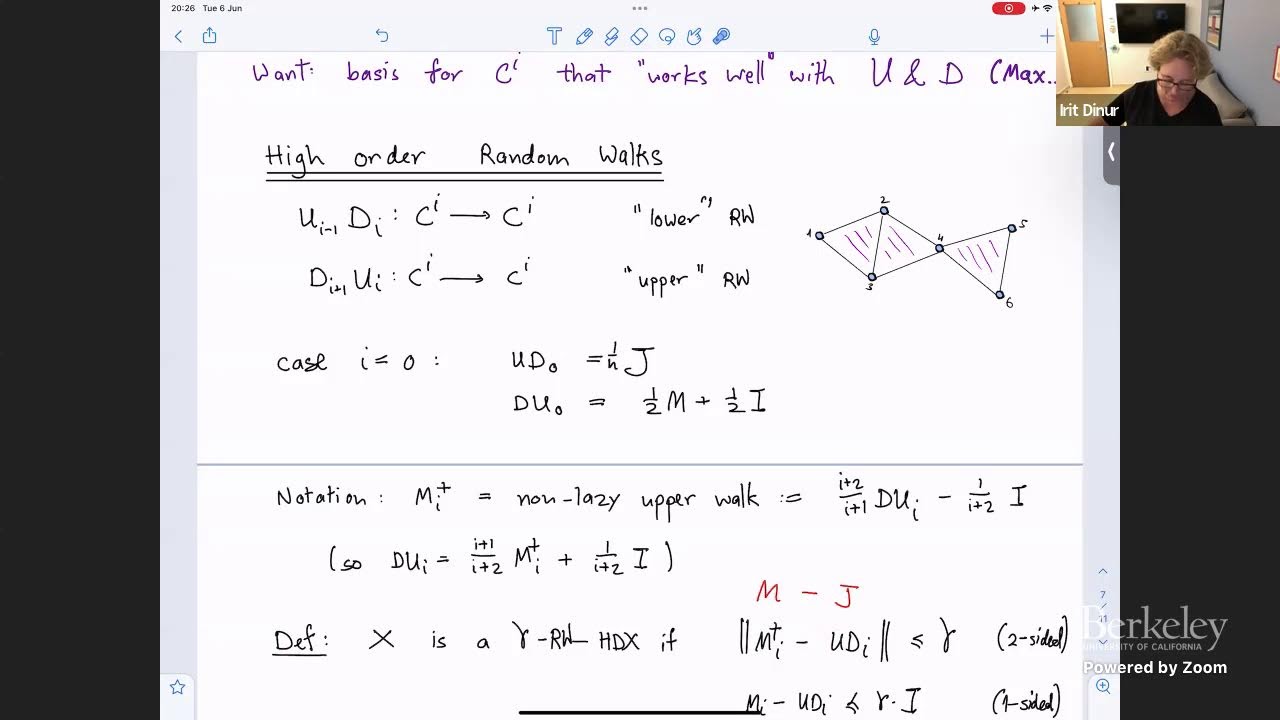 20:26 Tue 6 Jun
Want: basis for Cⁱ that "works well" with U & D (Max..
Irit Dinur
High order Random Walks
Uᵢ₋₁ Dᵢ : Cⁱ ⟶ Cⁱ "lower" RW
Dᵢ₊₁ Uᵢ : Cⁱ ⟶ Cⁱ "upper" RW
1 2 3 4 5 6
case i = 0 : UD₀ = 1/n J
DU₀ = 1/2 M + 1/2 I
Notation: Mᵢ⁺ = non-lazy upper walk := i+2/i+1 DUᵢ - 1/i+2 I
(so DUᵢ = i+1/i+2 Mᵢ⁺ + 1/i+2 I )
M - J
Def: X is a γ-RW HDX if ‖Mᵢ⁺ - UDᵢ‖ ≤ γ (2-sided)
Mᵢ - UDᵢ ≼ γ·I (1-sided)
7
11
Berkeley
UNIVERSITY OF CALIFORNIA
Powered by Zoom